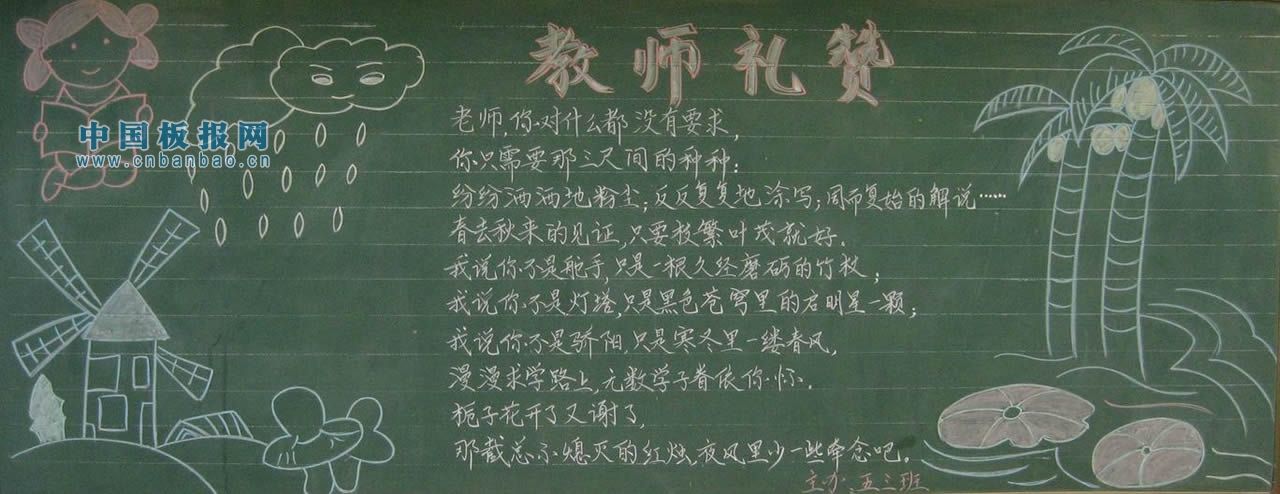 教师礼赞
中国板报网
www.cnbanbao.cn
老师,你对什么都没有要求,
你只需要那三尺间的种种:
纷纷洒洒地粉尘;反反复复地涂写;周而复始的解说……
春去秋来的见证,只要枝繁叶茂就好.
我说你不是舵手,只是一根久经磨砺的竹杖;
我说你不是灯塔,只是黑色苍穹里的启明星一颗;
我说你不是骄阳,只是寒冬里一缕春风,
漫漫求学路上,无数学子眷依你怀.
栀子花开了又谢了,
那截总不熄灭的红烛,夜风里少一些牵念吧。
主办:五三班